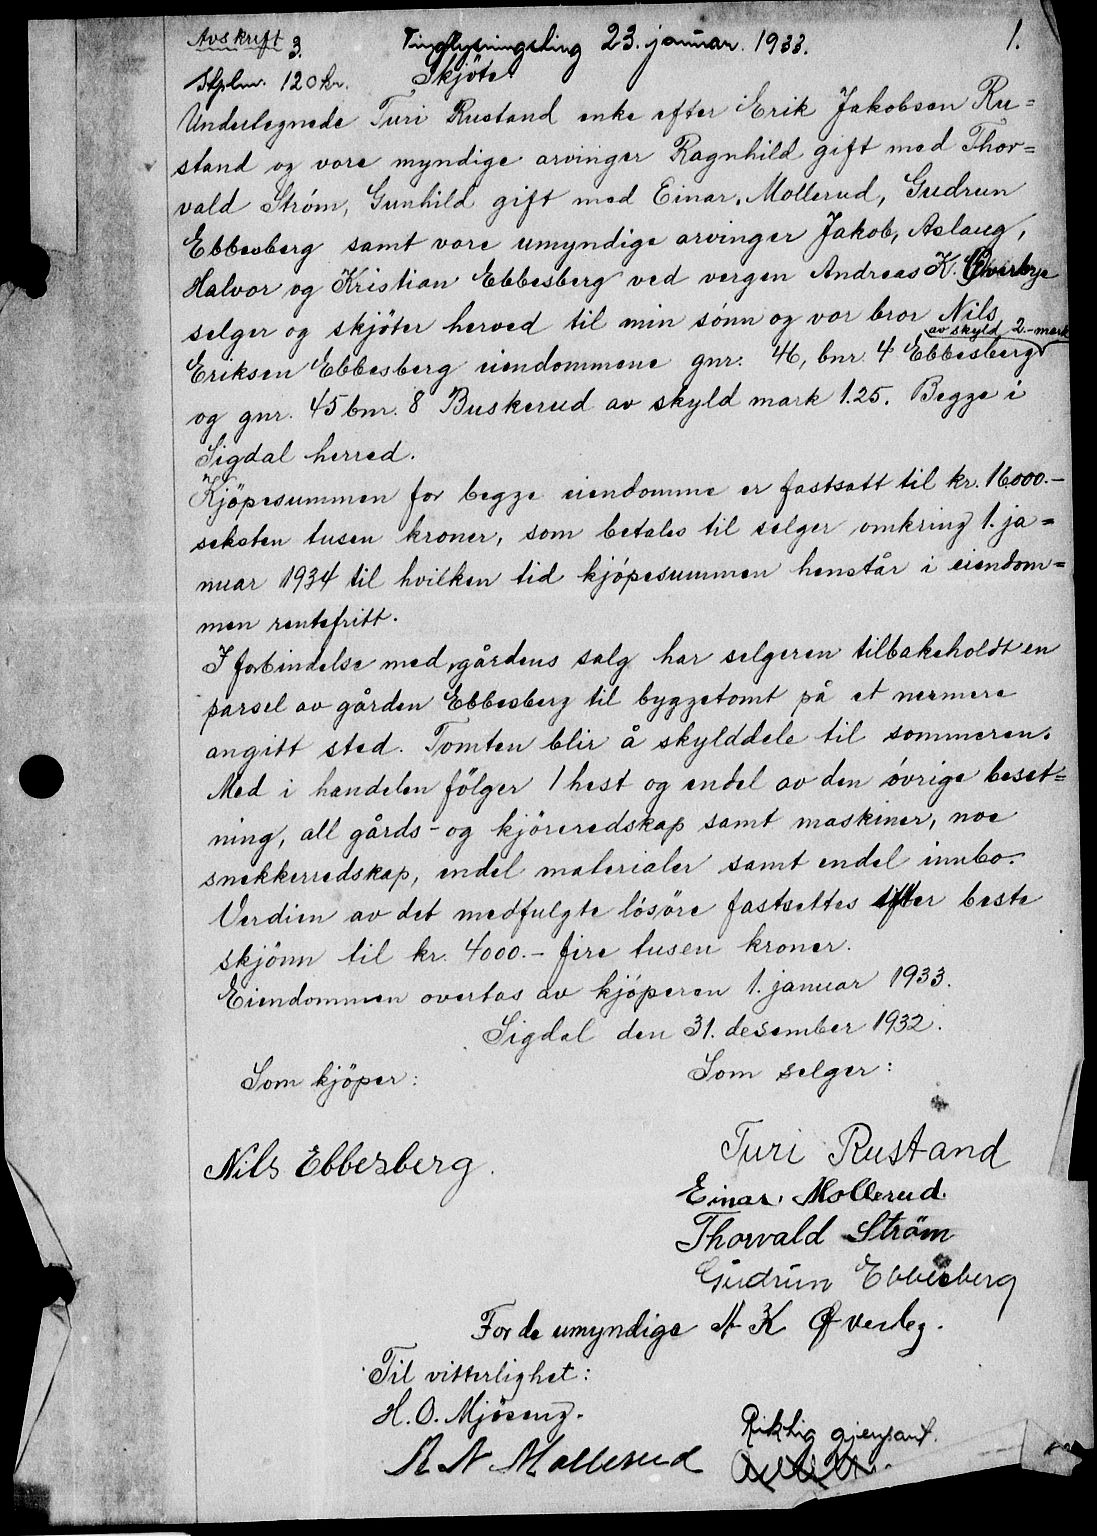 Avskrift 3. Tinglysningsting 23. januar. 1933. 1.
Stplm. 120 kr. Skjöte
Undertegnede Turi Rustand enke efter Erik Jakobsen Ru=
stand og vore myndige arvinger Ragnhild gift med Thor=
vald Strøm, Gunhild gift med Einar. Mollerud, Gudrun
Ebbesberg samt vore umyndige arvinger Jakob, Aslaug,
Halvor og Kristian Ebbesberg ved vergen Andreas K. Øverbye
selger og skjöter herved til min sønn og vor bror Nils
av skyld 2.- mark
Eriksen Ebbesberg eiendommene gnr. 46, bnr 4 Ebbesberg
og gnr. 45 bnr. 8 Buskerud av skyld mark 1.25. Begge i
Sigdal herred.
Kjöpesummen for begge eiendomme er fastsatt til kr. 16000.-
seksten tusen kroner, som betales til selger omkring 1. ja=
nuar 1934 til hvilken tid kjópesummen henstår i eiendom=
men rentefritt.
I forbindelse med gårdens salg har selgeren tilbakeholdt en
parsel av gården Ebbesberg til byggetomt på et nermere
angitt sted. Tomten blir å skylddele til sommeren.
Med i handelen fölger 1 hest og endel av den óvrige beset=
ning, all gårds- og kjöreredskap samt maskiner, noe
snekkerredskap, endel materialer samt endel innbo.
Verdien av det medfulgte lósöre fastsettes efter beste
skjönn til kr. 4000.- fire tusen kroner.
Eiendommen overtas av kjöperen 1. januar 1933.
Sigdal den 31. desember 1932.
Som kjöper: Som selger:
Nils Ebbesberg. Turi Rustand
Einar. Mollerud.
Thorvald Ström
Gudrun Ebbesberg
For de umyndige A K Øverby.
Til vitterlighet:
H. O. Mjöseng.
A N Mollerud
Riktig gjenpart.